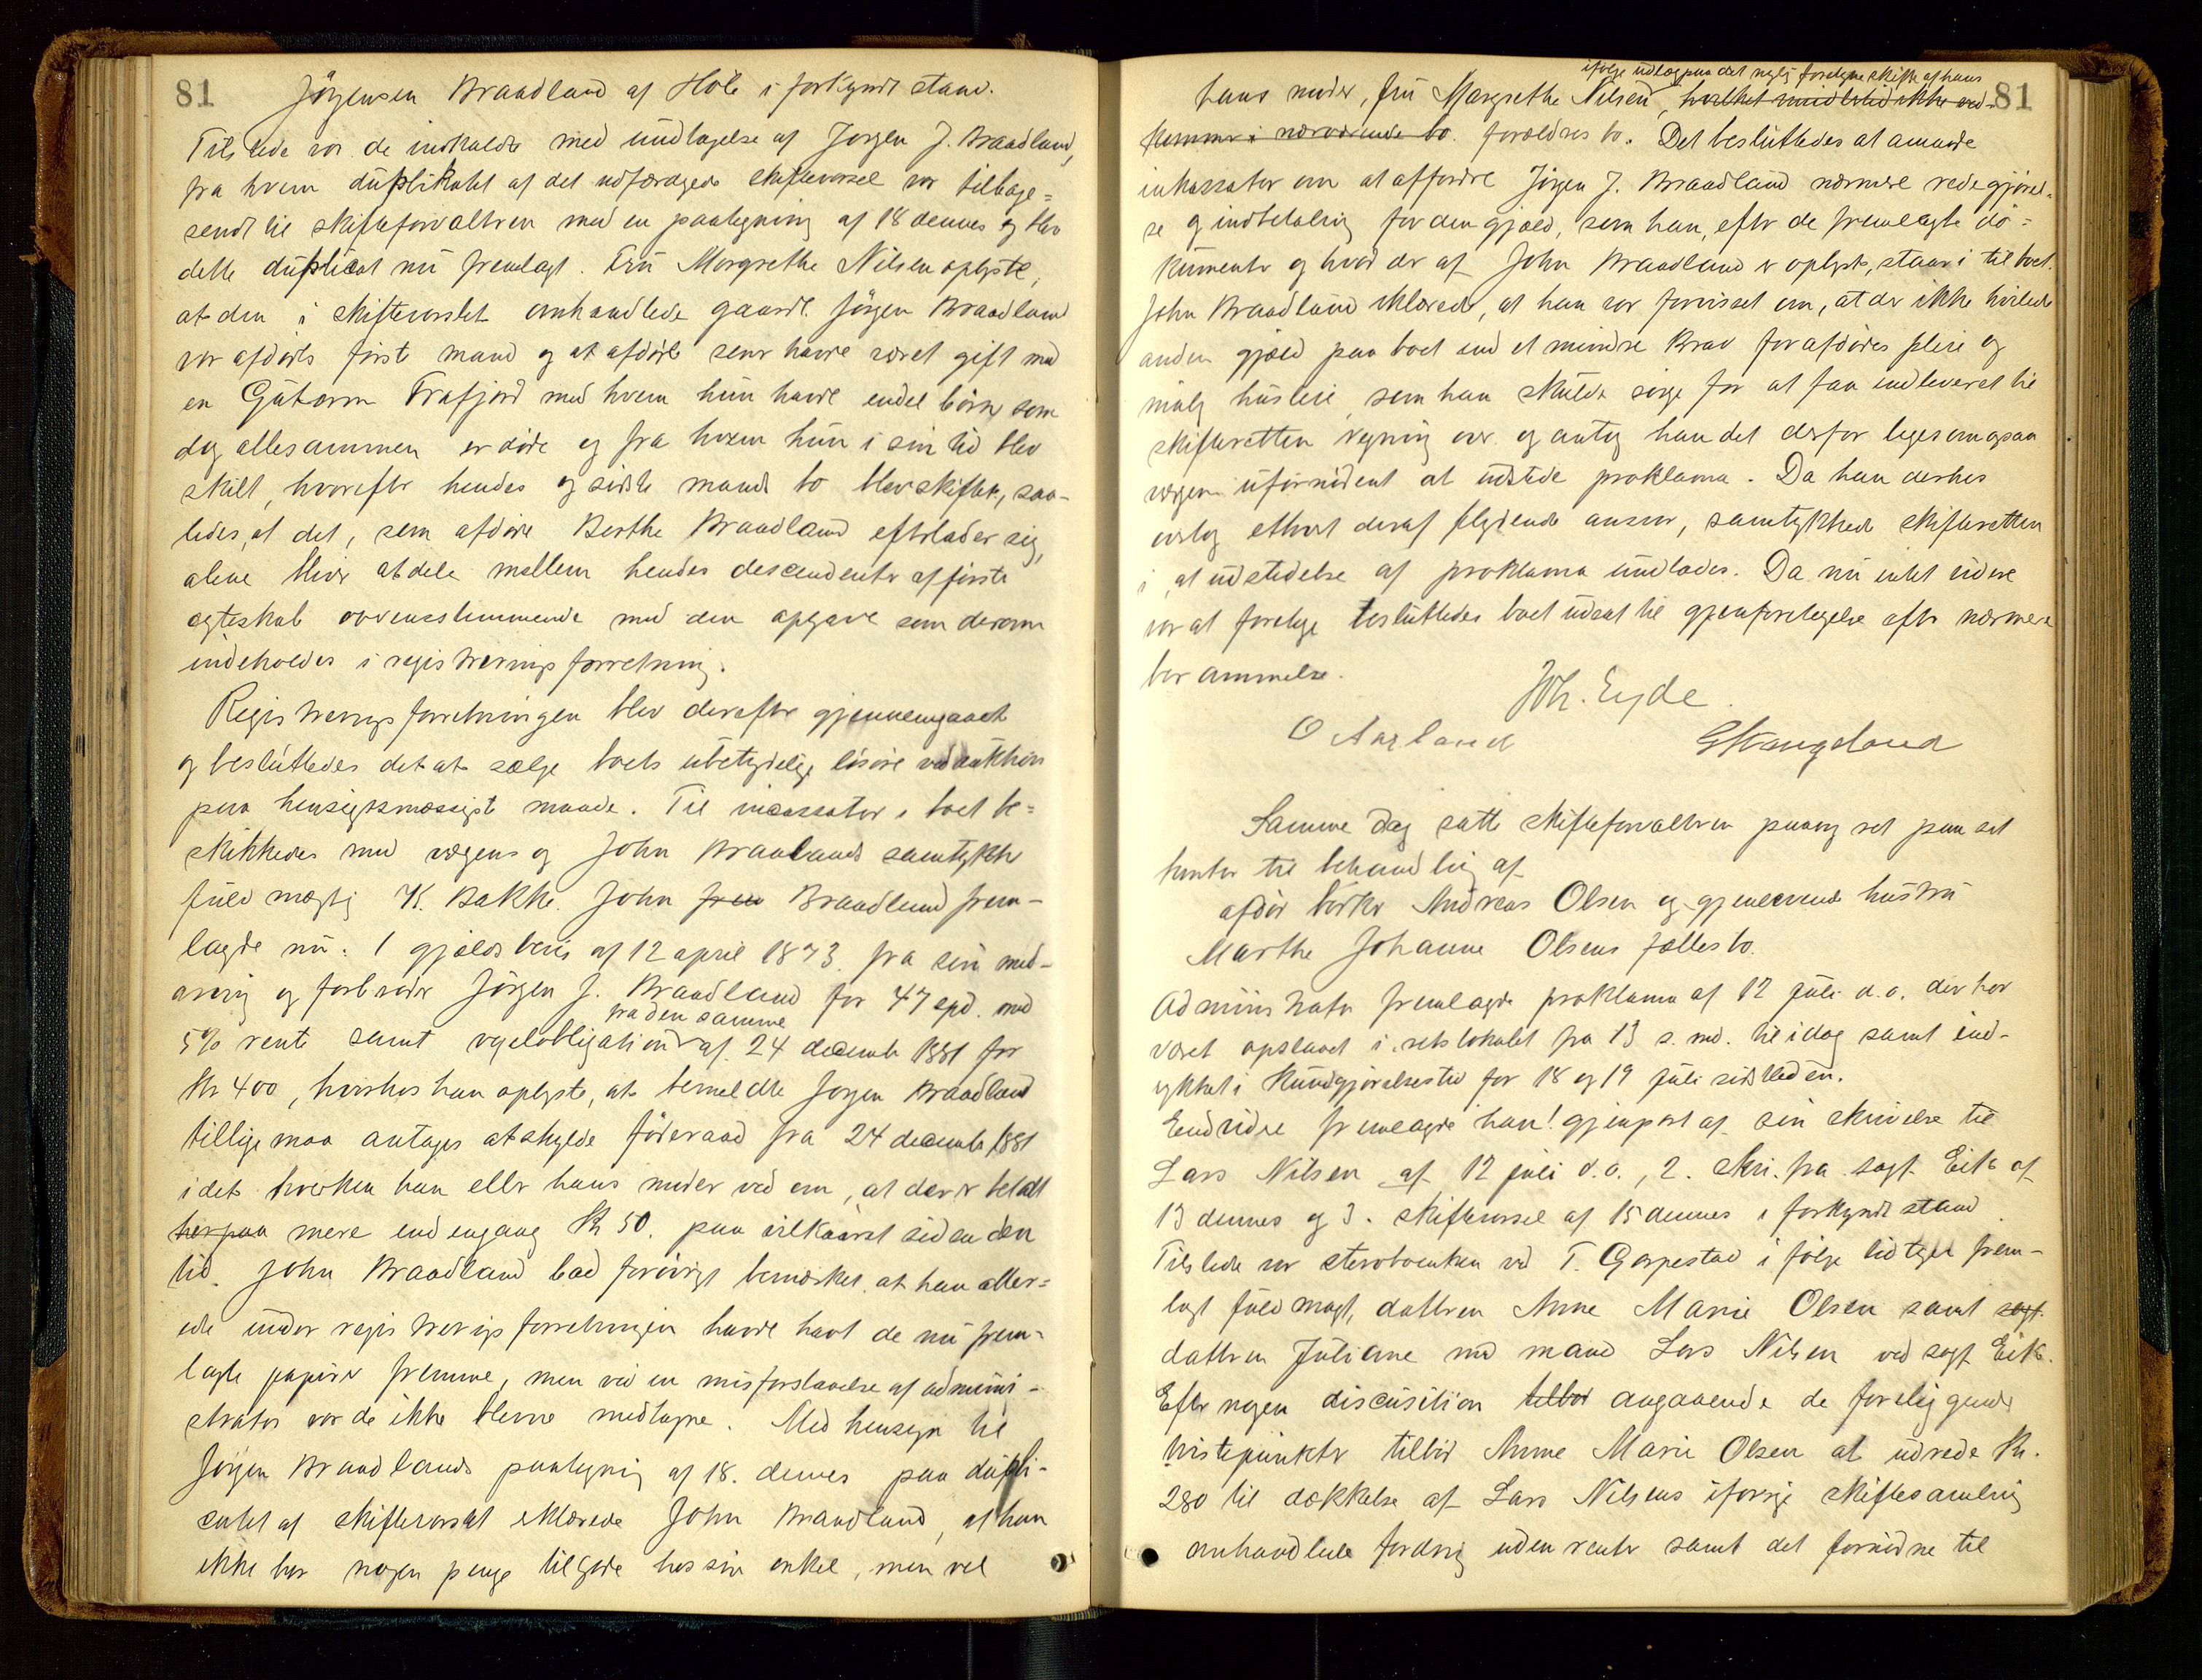 81
Jörgensen Braadland af Höle i forkyndt stand.
Tilstede var de indkaldte med undtagelse af Jørgen J. Braadland,
fra hvem duplikatet af det udfærdigede skiftevarsel var tilbage=
sendt til skifteforvalteren med en paategning af 18 dennes og blev
dette duplicat nu fremlagt. Fru Margrethe Nilsen oplyste,
at den i skiftevarslet omhandlede gaardbr. Jörgen Braadland
var afdödes förste mand og at afdöde senere havde været gift med
en Gutorm Frafjord med hvem hun havde endel börn, som
dog allesammen er döde og fra hvem hun i sin tid blev
skilt, hvorefter hendes og sidste mands bo blev skiftet, saa-
ledes, at det, som afdöde Berthe Braadland efterlader sig,
alene bliver at dele mellem hendes descendenter af förste
ægteskab overensstemmende med den opgave som derom
indeholdes i registreringsforretning.
Registreringsforretningen blev derefter gjennemgaaet
og besluttedes det at sælge boets ubetydelige lösöre ved auktion
paa hensigtsmæssigst maade. Til incassator i boet be=
skikkedes med vægens og John Braalands samtykke
fuldmægtig K. Bakke. John frem Braadland frem-
lagde nu: 1 gjældsbevis af 12 april 1873 fra sin med-
arving og farbroder Jörgen J. Braadland for 47 spd. med
fra den samme
5% rente samt vexelobligation af 24 december 1881 for
Kr 400, hvorhos han oplyste, at bemeldte Jørgen Braadland
tillige maa antages at skylde föderaad fra 24 december 1881
idet hverken han eller hans moder ved om, at der er betalt
herpaa mere end engang Kr 50. paa vilkaaret siden den
tid. John Braadland bad forövrigt bemærket, at han aller=
ede under registreringsforretningen havde havt de nu frem=
lagte papirer fremme, men ved en misforstaaelse af admini-
strator var de ikke blevne medtagne. Med hensyn til
Jörgen Braadlands paategning af 18. dennes paa dupli-
catet af skiftevarslet erklærede John Braadland, at han
ikke har nogen penge tilgode hos sin onkel, men vel
81
ifölge udlæg paa det nylig foretagne skifte af hans
hans moder, fru Margrethe Nilsen, hvilket imidlertid ikke ved-
kommer i nærværende bo. forældres bo. Det besluttedes at anmode
inkassator om at affordre Jörgen J. Braadland nærmere redegjörel-
se og indbetaling for den gjæld, som han, efter de fremlagte do=
kumenter og hvad der af John Braadland er oplyst, staar i til boet.
John Braadland erklærede, at han var forvisset om, at der ikke hvilede
anden gjæld paa boet end et mindre krav for afdödes pleie og
mulig husleie, som han skulde sörge for at faa indleveret til
skifteretten regning over og antog han det derfor ligesom ogsaa
vægen uformödent at udstede proklama. Da han derhos
overtog ethvert deraf flydende ansvar, samtykkede skifteretten
i, at udstedelse af proklama undlades. Da nu intet videre
var at foretage besluttedes boet udsat til gjenforetagelse efter nærmere
berammelse.
Joh. Eyde.
O Aarland
G Stangeland
Samme dag satte skifteforvalteren paany ret paa sit
kontor til behandling af
afdöd bödker Andreas Olsen og gjenlevende hustru
Marthe Johanne Olsens fællesbo.
Administrator fremlagde proklama af 12 juli d.a. der har
været opslaaet i retslokalet fra 13 s.md. til idag samt ind-
rykket i Kundgjörelsestid for 18 og 19 juli sidstleden.
Endvidre fremlagde han 1. gjenpart af sin skrivelse til
Lars Nilsen af 12 juli d.a., 2. skr. fra sagf. Eik af
13 dennes og 3. skiftevarsel af 15 dennes i forkyndt stand.
Tilstede var stervboenken ved T. Garpestad ifölge tidligere frem-
lagt fuldmagt, datteren Anne Marie Olsen samt sagf.
datteren Juliane med mand Lars Nilsen ved sagf. Eik.
Efter nogen discusition tilböd angaaende de foreliggende
tvistepunkter tilböd Anne Marie Olsen at udrede Kr.
280 til dækkelse af Lars Nilsens i forrige skiftesamling
omhandlede fordring uden renter samt det fornödne til